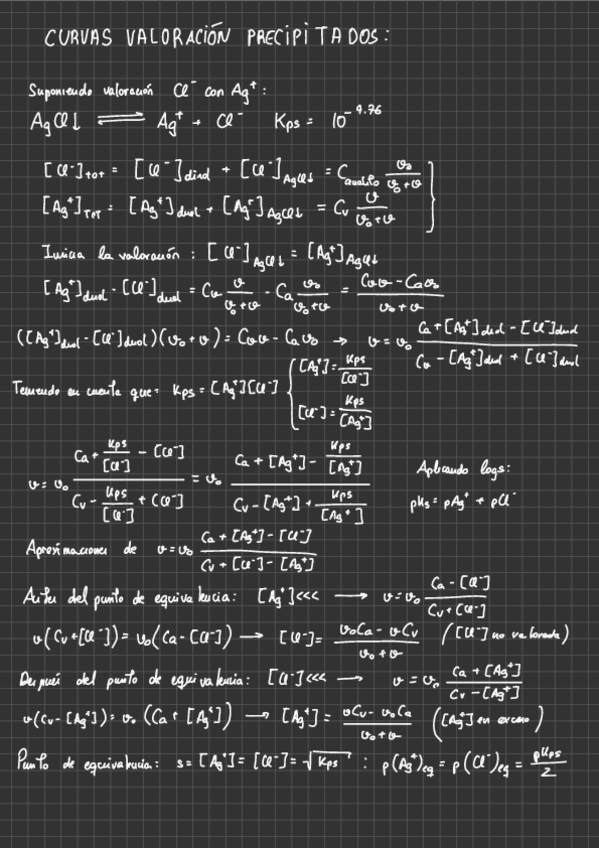 CURVAS VALORACIÓN PRECIPITADOS:
Suponiendo valoración Cl⁻ con Ag⁺:
AgCl↓ ⇌ Ag⁺ + Cl⁻ Kps = 10^-9.76
[Cl⁻]tot = [Cl⁻]disol + [Cl⁻]AgCl↓ = Canalito v₀/(v₀+v)
[Ag⁺]TOT = [Ag⁺]disol + [Ag⁺]AgCl↓ = Cv v/(v₀+v)
Inicia la valoración: [Cl⁻]AgCl↓ = [Ag⁺]AgCl↓
[Ag⁺]disol - [Cl⁻]disol = Cv v/(v₀+v) - Ca v₀/(v₀+v) = (Cv v - Ca v₀)/(v₀+v)
([Ag⁺]disol - [Cl⁻]disol)(v₀+v) = Cv v - Ca v₀ → v = v₀ (Ca + [Ag⁺]disol - [Cl⁻]disol)/(Cv - [Ag⁺]disol + [Cl⁻]disol)
Teniendo en cuenta que: Kps = [Ag⁺][Cl⁻] { [Ag⁺] = Kps/[Cl⁻]
[Cl⁻] = Kps/[Ag⁺]
v = v₀ (Ca + Kps/[Cl⁻] - [Cl⁻])/(Cv - Kps/[Cl⁻] + [Cl⁻]) = v₀ (Ca + [Ag⁺] - Kps/[Ag⁺])/(Cv - [Ag⁺] + Kps/[Ag⁺]) Aplicando logs:
pKs = pAg⁺ + pCl⁻
Aproximaciones de v = v₀ (Ca + [Ag⁺] - [Cl⁻])/(Cv + [Cl⁻] - [Ag⁺])
Antes del punto de equivalencia: [Ag⁺] <<< → v = v₀ (Ca - [Cl⁻])/(Cv + [Cl⁻])
v(Cv + [Cl⁻]) = v₀(Ca - [Cl⁻]) → [Cl⁻] = (v₀Ca - vCv)/(v₀+v) ([Cl⁻] no valorada)
Después del punto de equivalencia: [Cl⁻] <<< → v = v₀ (Ca + [Ag⁺])/(Cv - [Ag⁺])
v(Cv - [Ag⁺]) = v₀ (Ca + [Ag⁺]) → [Ag⁺] = (vCv - v₀Ca)/(v₀+v) ([Ag⁺] en exceso)
Punto de equivalencia: s = [Ag⁺] = [Cl⁻] = √Kps : p(Ag⁺)eq = p(Cl⁻)eq = pKps/2